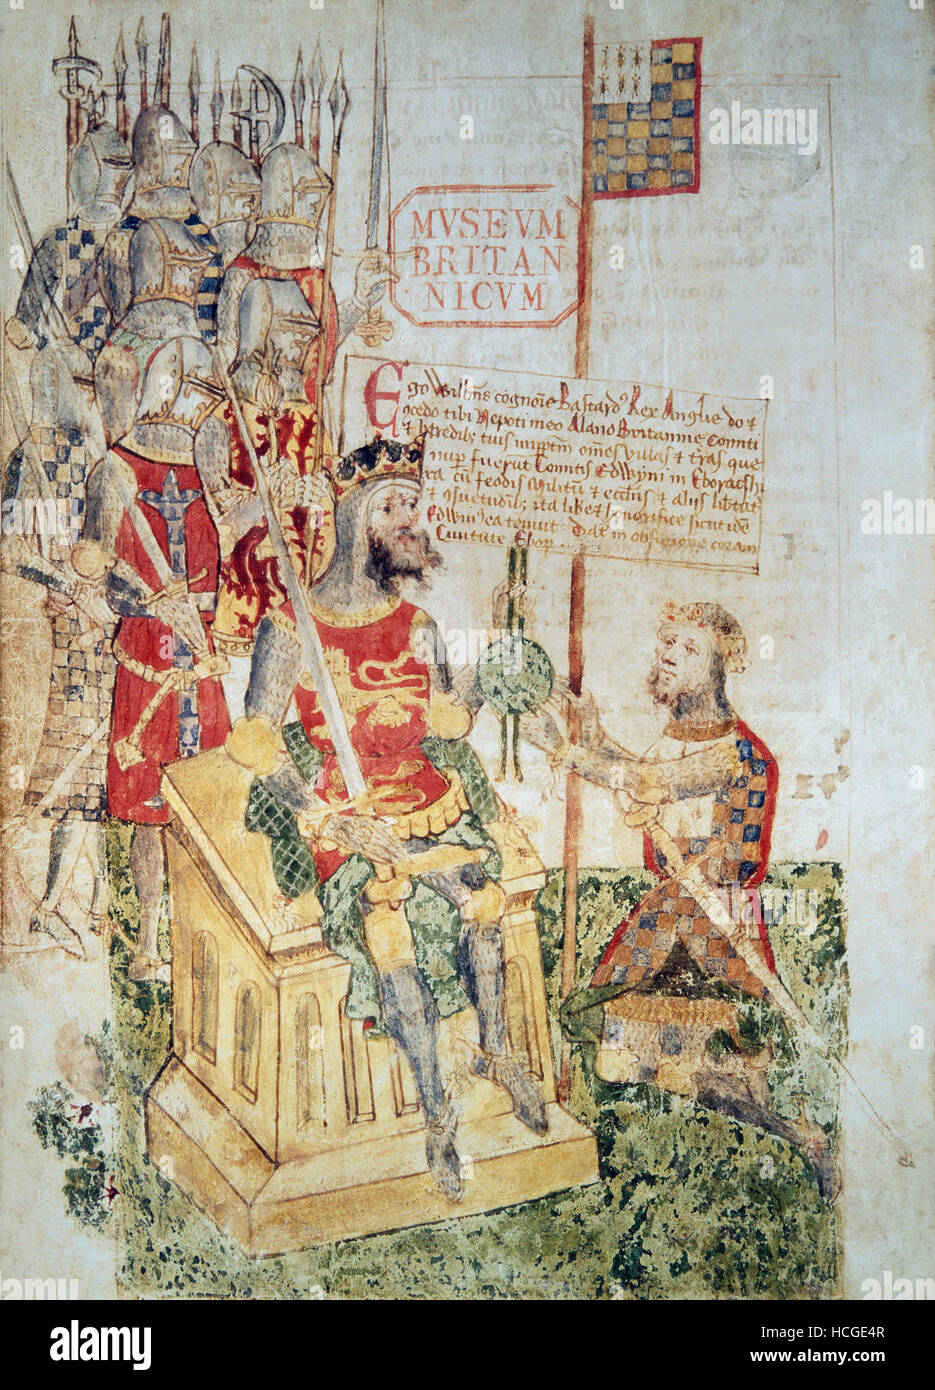 MVSEVM
BRITAN
NICVM
Ego Willms cognoīe Bastardꝰ Rex Anglie do &
cōcedo tibi Nepoti meo Alano Britannie Comiti
& heredibꝫ tuis imppetm om̄es villas & tras que
nup fuerūt Comitis Edwyni in Eboraschi
ra cū feodis militū & eccliis & aliis libtat
& cōsuetudibꝫ ita libe & honorifice sicut idē
Edwinꝰ ea tenuit Dat in obsidione coram
Civitate Ebor
alamy
a
alamy
a
a
a
a
alamy stock photo
HCGE4R
www.alamy.com